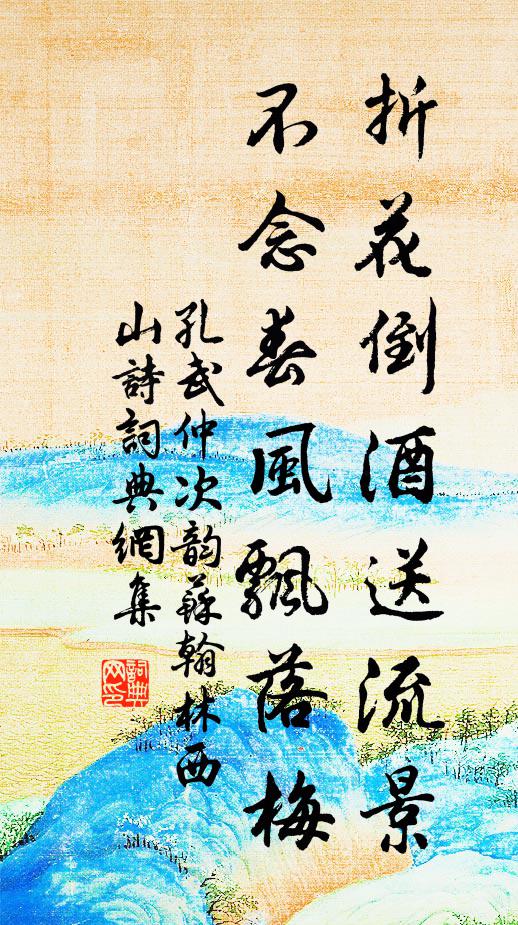 折花倒酒送流景
不念春風飄落梅
孔武仲次韵蘇翰林西
山詩詞典網集
詞典
网印